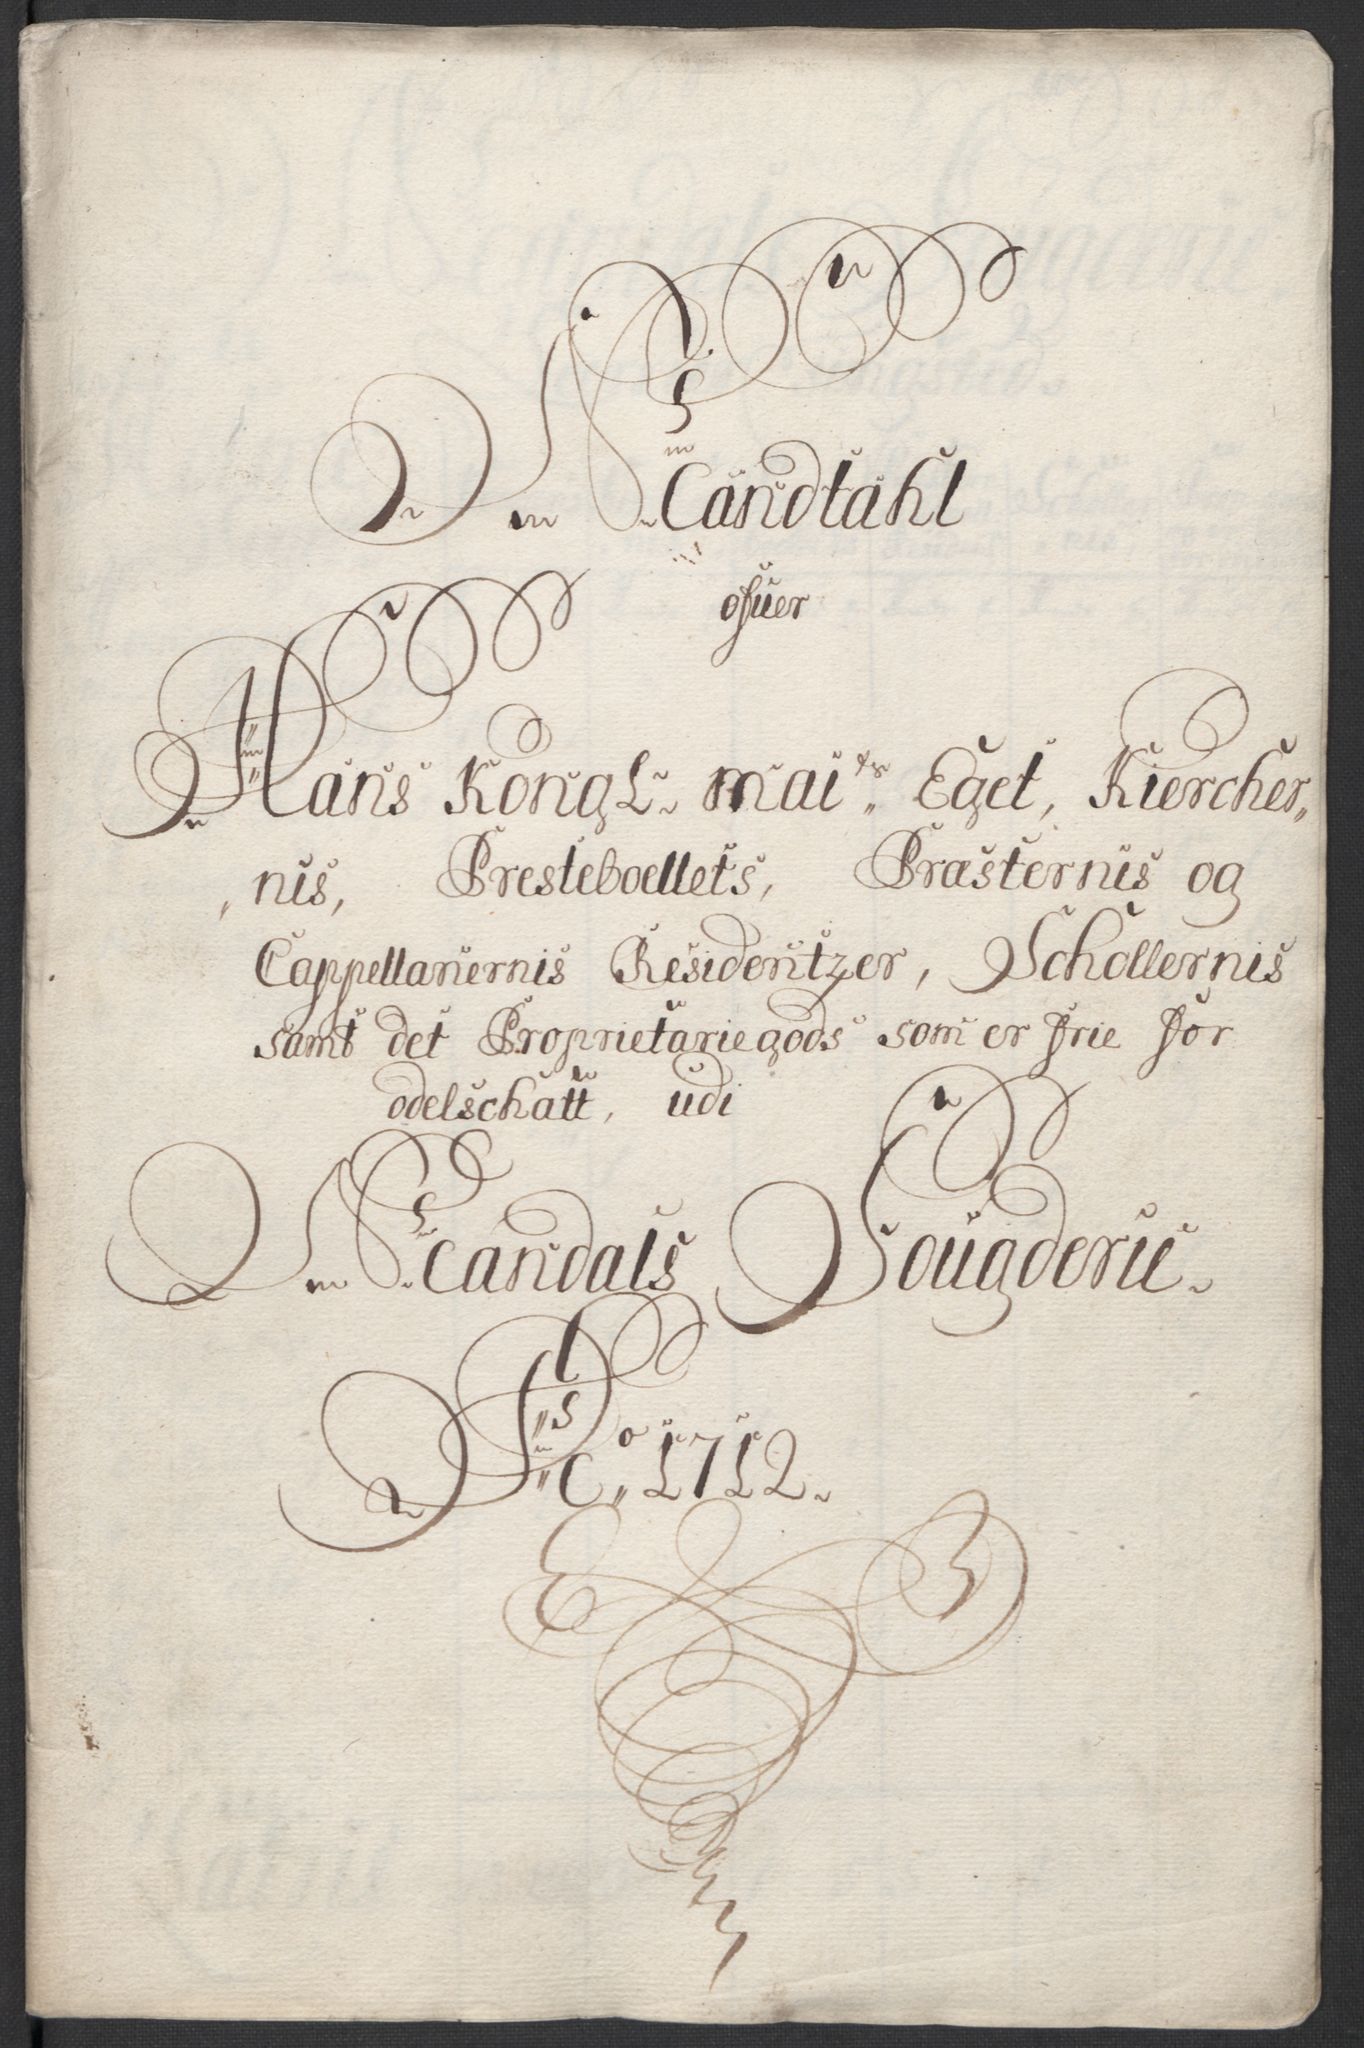 Mandtahl
ofuer
Hans Kongl: mai:ts Eget, Kiercher„
„nis, Presteboellets, Præsternis og
Cappellanernis Residentzer, Schollernis
samt det Proprietariegods som er frie for
odelschatt, udi
Mandals Fougderie.
Ao 1712.